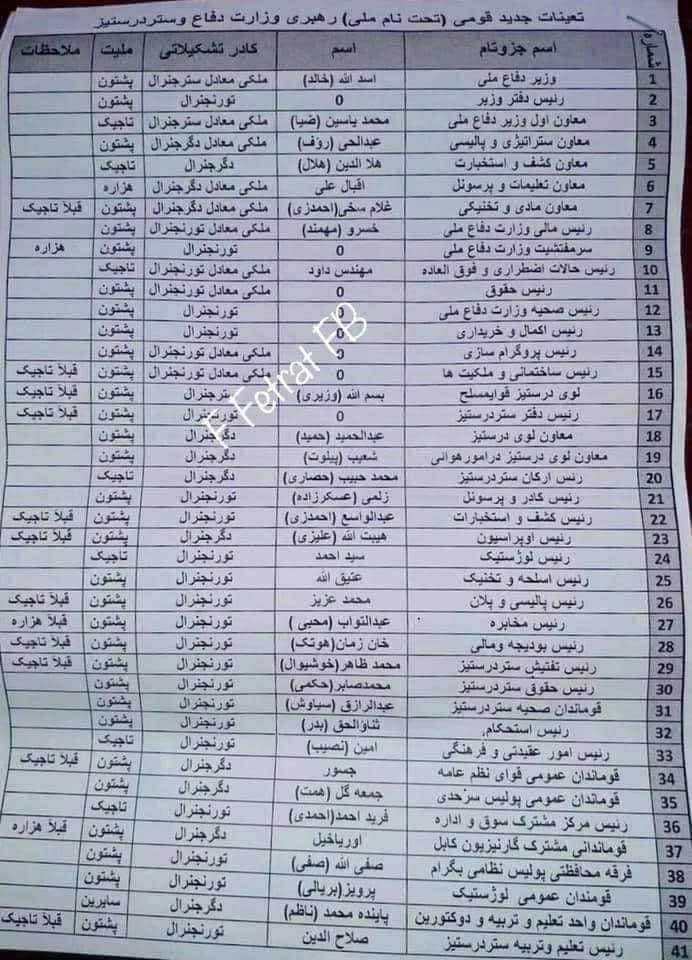 تعینات جدید قومی (تحت نام ملی) رهبری وزارت دفاع وستردرستیز
شماره اسم جزوتام اسم کادر تشکیلاتی ملیت ملاحظات
1 وزیر دفاع ملی اسد الله (خالد) ملکی معادل سترجنرال پشتون
2 رئیس دفتر وزیر 0 تورنجنرال پشتون
3 معاون اول وزیر دفاع ملی محمد یاسین (ضیا) ملکی معادل سترجنرال تاجیک
4 معاون ستراتیژی و پالیسی عبدالحی (رؤف) ملکی معادل دگرجنرال پشتون
5 معاون کشف و استخبارت هلا الدین (هلال) دگرجنرال تاجیک
6 معاون تعلیمات و پرسونل اقبال علی ملکی معادل دگرجنرال هزاره
7 معاون مادی و تخنیکی غلام سخی(احمدزی) ملکی معادل دگرجنرال پشتون قبلاً تاجیک
8 رئیس مالی وزارت دفاع ملی خسرو (مهمند) ملکی معادل تورنجنرال پشتون
9 سرمفتشیت وزارت دفاع ملی 0 تورنجنرال پشتون هزاره
10 رئیس حالات اضطراری و فوق العاده مهندس داود ملکی معادل تورنجنرال تاجیک
11 رئیس حقوق 0 ملکی معادل تورنجنرال پشتون
12 رئیس صحیه وزارت دفاع ملی 0 تورنجنرال پشتون
13 رئیس اکمال و خریداری 0 تورنجنرال پشتون
14 رئیس پروگرام سازی 0 ملکی معادل تورنجنرال پشتون
15 رئیس ساختمانی و ملکیت ها ملکی معادل تورنجنرال پشتون قبلاً تاجیک
16 لوی درستیز قوایمسلح بسم الله (وزیری) سترجنرال پشتون قبلاً تاجیک
17 رئیس دفتر ستردرستیز 0 تورنجنرال پشتون قبلاً تاجیک
18 معاون لوی درستیز عبدالحمید (حمید) دگرجنرال پشتون
19 معاون لوی درستیز درامورهوائی شعیب (پیلوت) دگرجنرال پشتون
20 رئس ارکان ستردرستیز محمد حبیب (حصاری) دگرجنرال تاجیک
21 رئیس کادر و پرسونل زلمی (عسکرزاده) تورنجنرال پشتون
22 رئیس کشف و استخبارات عبدالواسع (احمدزی) تورنجنرال پشتون قبلاً تاجیک
23 رئیس اوپراسیون هیبت الله (علیزی) دگرجنرال پشتون قبلاً تاجیک
24 رئیس لوژستیک سید احمد تورنجنرال تاجیک
25 رئیس اسلحه و تخنیک عتیق الله تورنجنرال پشتون
26 رئیس پالیسی و پلان محمد عزیز تورنجنرال پشتون قبلاً تاجیک
27 رئیس مخابره عبدالتواب (محبی ) تورنجنرال پشتون قبلاً هزاره
28 رئیس بودیجه ومالی خان زمان(هوتک) تورنجنرال پشتون قبلاً تاجیک
29 رئیس تفتیش ستردرستیز محمد ظاهر(خوشیوال) تورنجنرال پشتون قبلاً تاجیک
30 رئیس حقوق ستردرستیز محمدصابر(حکمی) تورنجنرال پشتون
31 قوماندان صحیه ستردرستیز عبدالرازق (سیاوش) تورنجنرال پشتون
32 رئیس استحکام. ثناؤالحق (بدر) تورنجنرال پشتون
33 رئیس امور عقیدتی و فرهنگی امین (نصیب) تورنجنرال تاجیک
34 قوماندان عمومی قوای نظم عامه جسور دگرجنرال پشتون قبلاً تاجیک
35 قوماندان عمومی پولیس سرحدی جمعه گل (همت) دگرجنرال پشتون
36 رئیس مرکز مشترک سوق و اداره فرید احمد(احمدی) تورنجنرال تاجیک
37 قوماندانی مشترک گارنیزیون کابل اوریاخیل دگرجنرال پشتون قبلاً هزاره
38 فرقه محافظتی پولیس نظامی بگرام صفی الله (صفی) تورنجنرال پشتون
39 قومندان عمومی لوژستیک پرویز(بریالی) تورنجنرال پشتون
40 قوماندان واحد تعلیم و تربیه و دوکتورین پاینده محمد (ناظم) دگرجنرال سایرین
41 رئیس تعلیم وتربیه ستردرستیز صلاح الدین تورنجنرال پشتون قبلاً تاجیک
E Fetrat FB